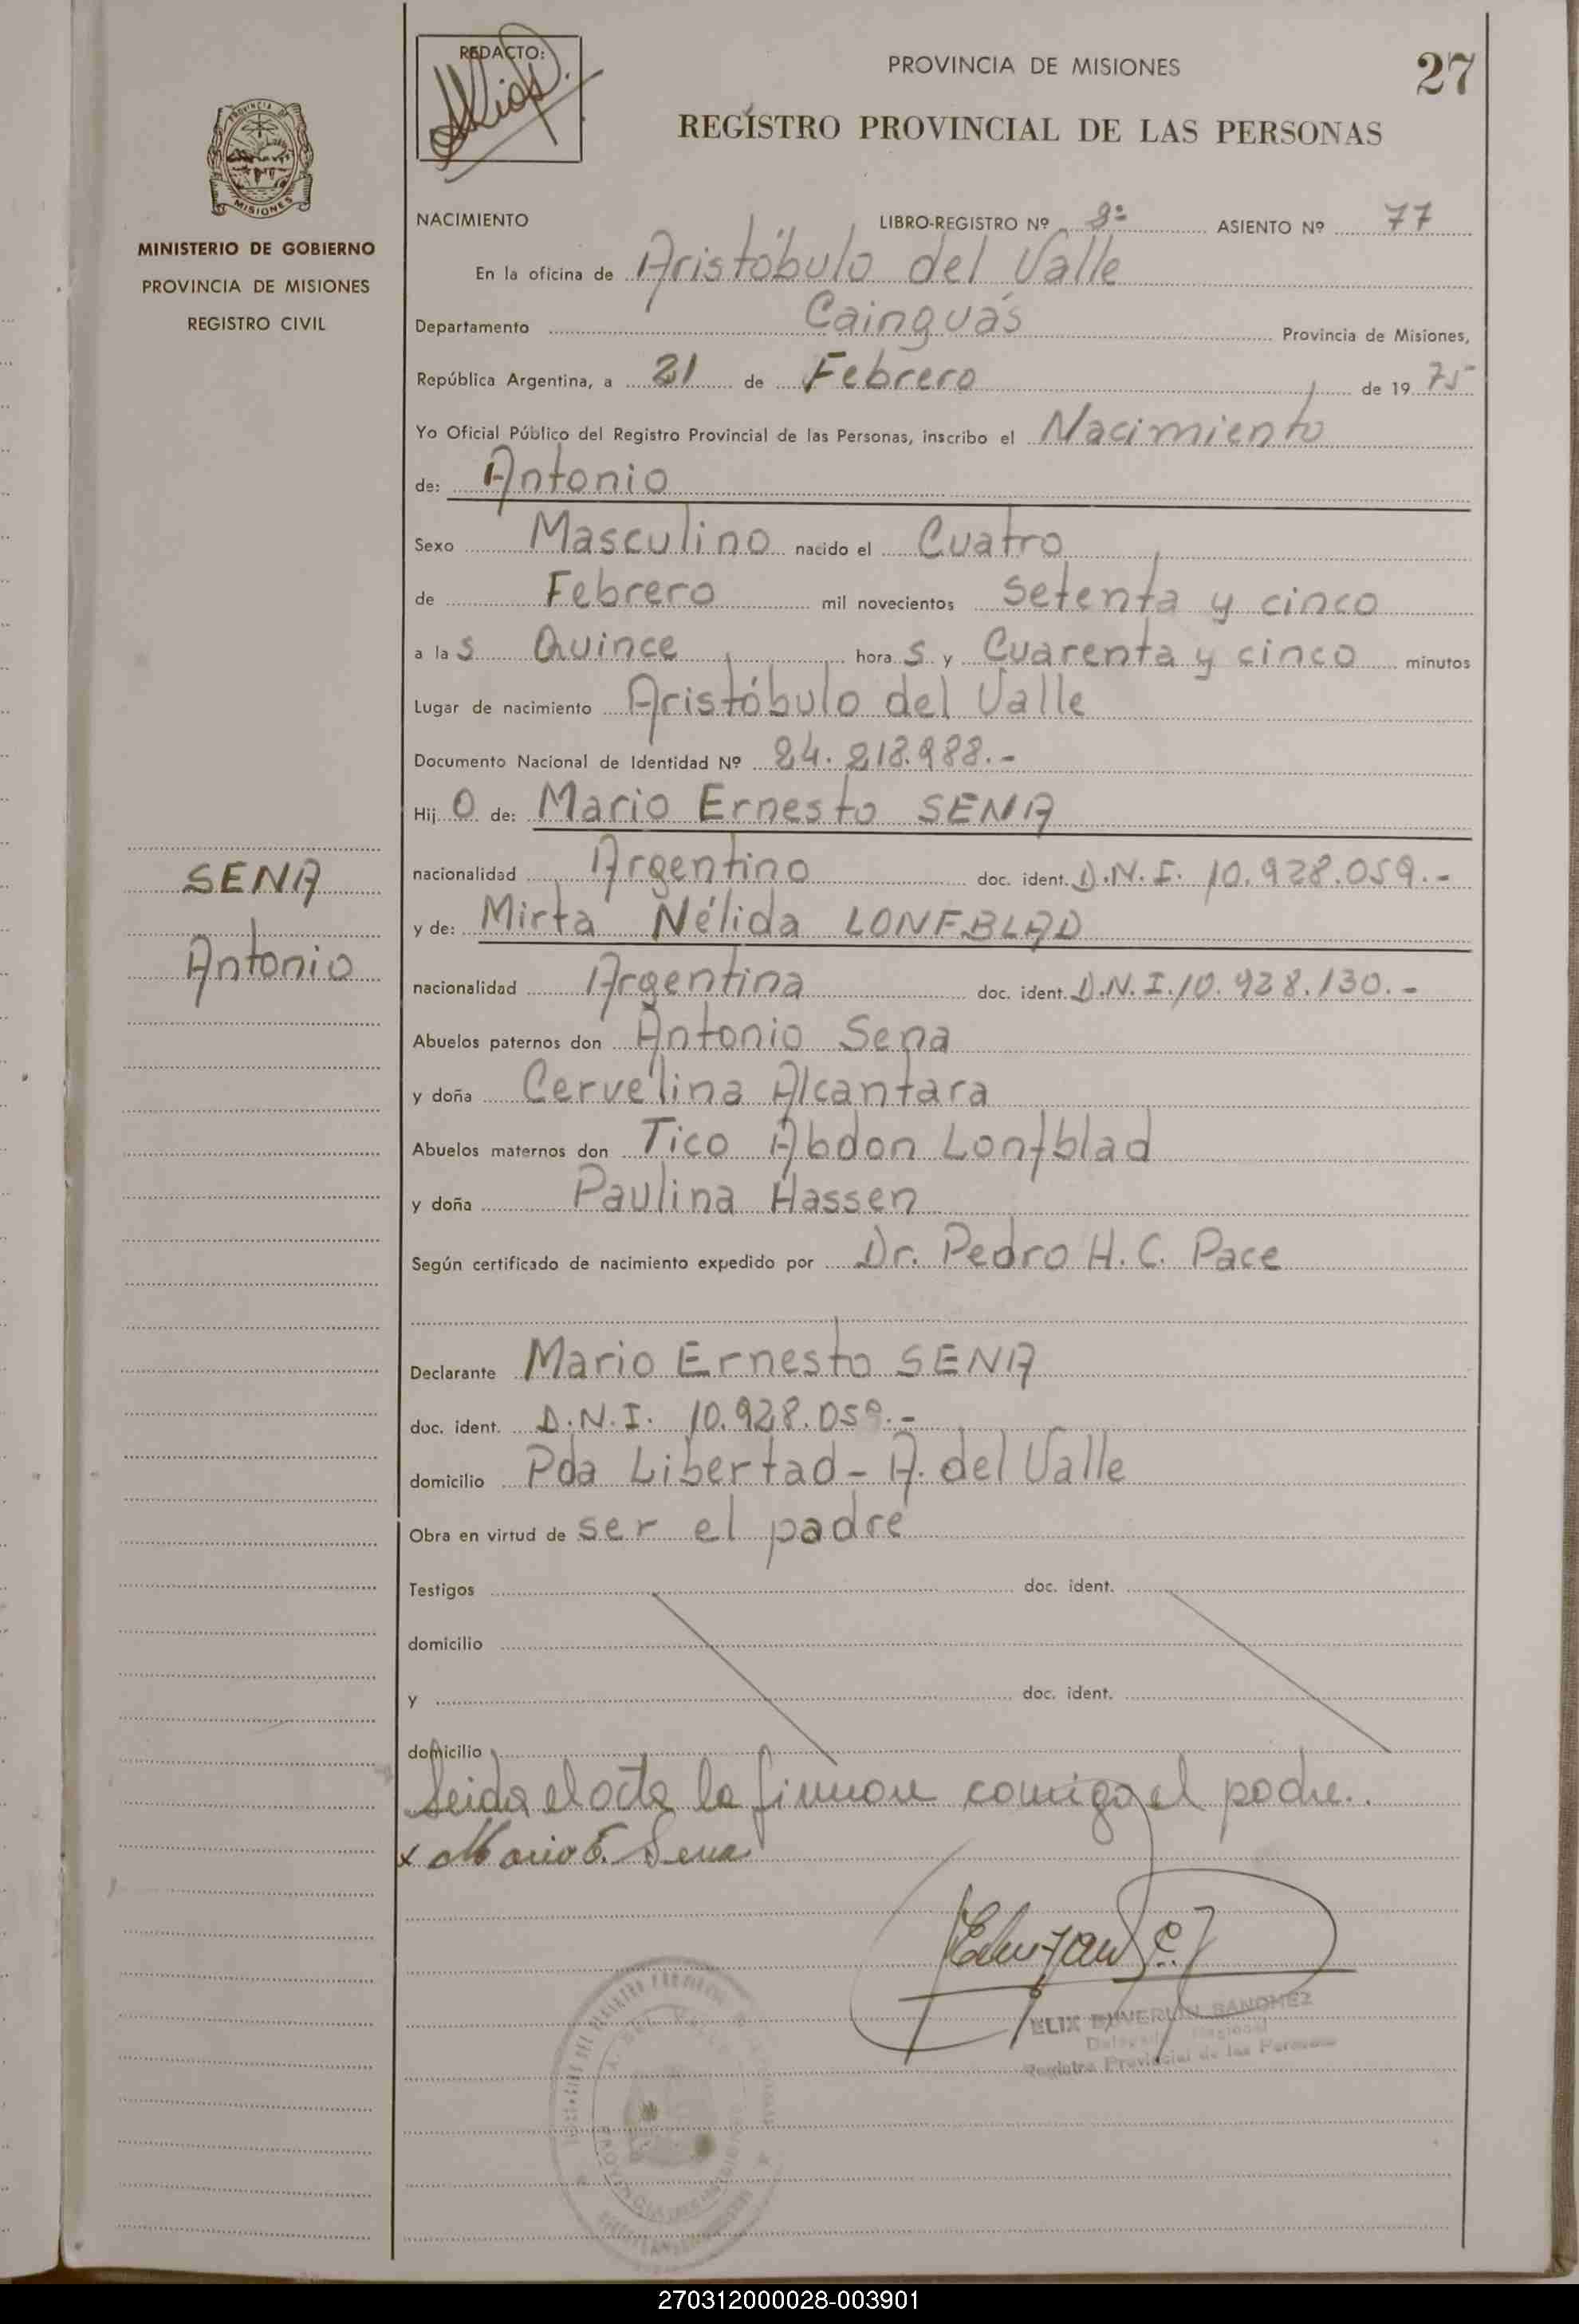 REDACTO:
PROVINCIA DE MISIONES
27
REGISTRO PROVINCIAL DE LAS PERSONAS
PROVINCIA DE
MISIONES
MINISTERIO DE GOBIERNO
PROVINCIA DE MISIONES
REGISTRO CIVIL
NACIMIENTO LIBRO-REGISTRO Nº 8º ASIENTO Nº 77
En la oficina de Aristóbulo del Valle
Departamento Cainguás Provincia de Misiones,
República Argentina, a 21 de Febrero de 1975
Yo Oficial Público del Registro Provincial de las Personas, inscribo el Nacimiento
de: Antonio
Sexo Masculino nacido el Cuatro
de Febrero mil novecientos setenta y cinco
a las Quince horas y Cuarenta y cinco minutos
Lugar de nacimiento Aristóbulo del Valle
Documento Nacional de Identidad Nº 24.218.988.-
Hijo de: Mario Ernesto SENA
nacionalidad Argentino doc. ident. D.N.I. 10.928.059.-
y de: Mirta Nélida LONFBLAD
nacionalidad Argentina doc. ident. D.N.I. 10.928.130.-
SENA
Antonio
Abuelos paternos don Antonio Sena
y doña Cervelina Alcantara
Abuelos maternos don Tico Abdon Lonfblad
y doña Paulina Hassen
Según certificado de nacimiento expedido por Dr. Pedro H. C. Pace
Declarante Mario Ernesto SENA
doc. ident. D.N.I. 10.928.059.-
domicilio Pda Libertad - A. del Valle
Obra en virtud de ser el padre
Testigos doc. ident.
domicilio
y doc. ident.
domicilio
Leida el acta la firman comigo el padre.
x Mario E. Sena
SANCHEZ
Registro Provincial de las Personas
270312000028-003901